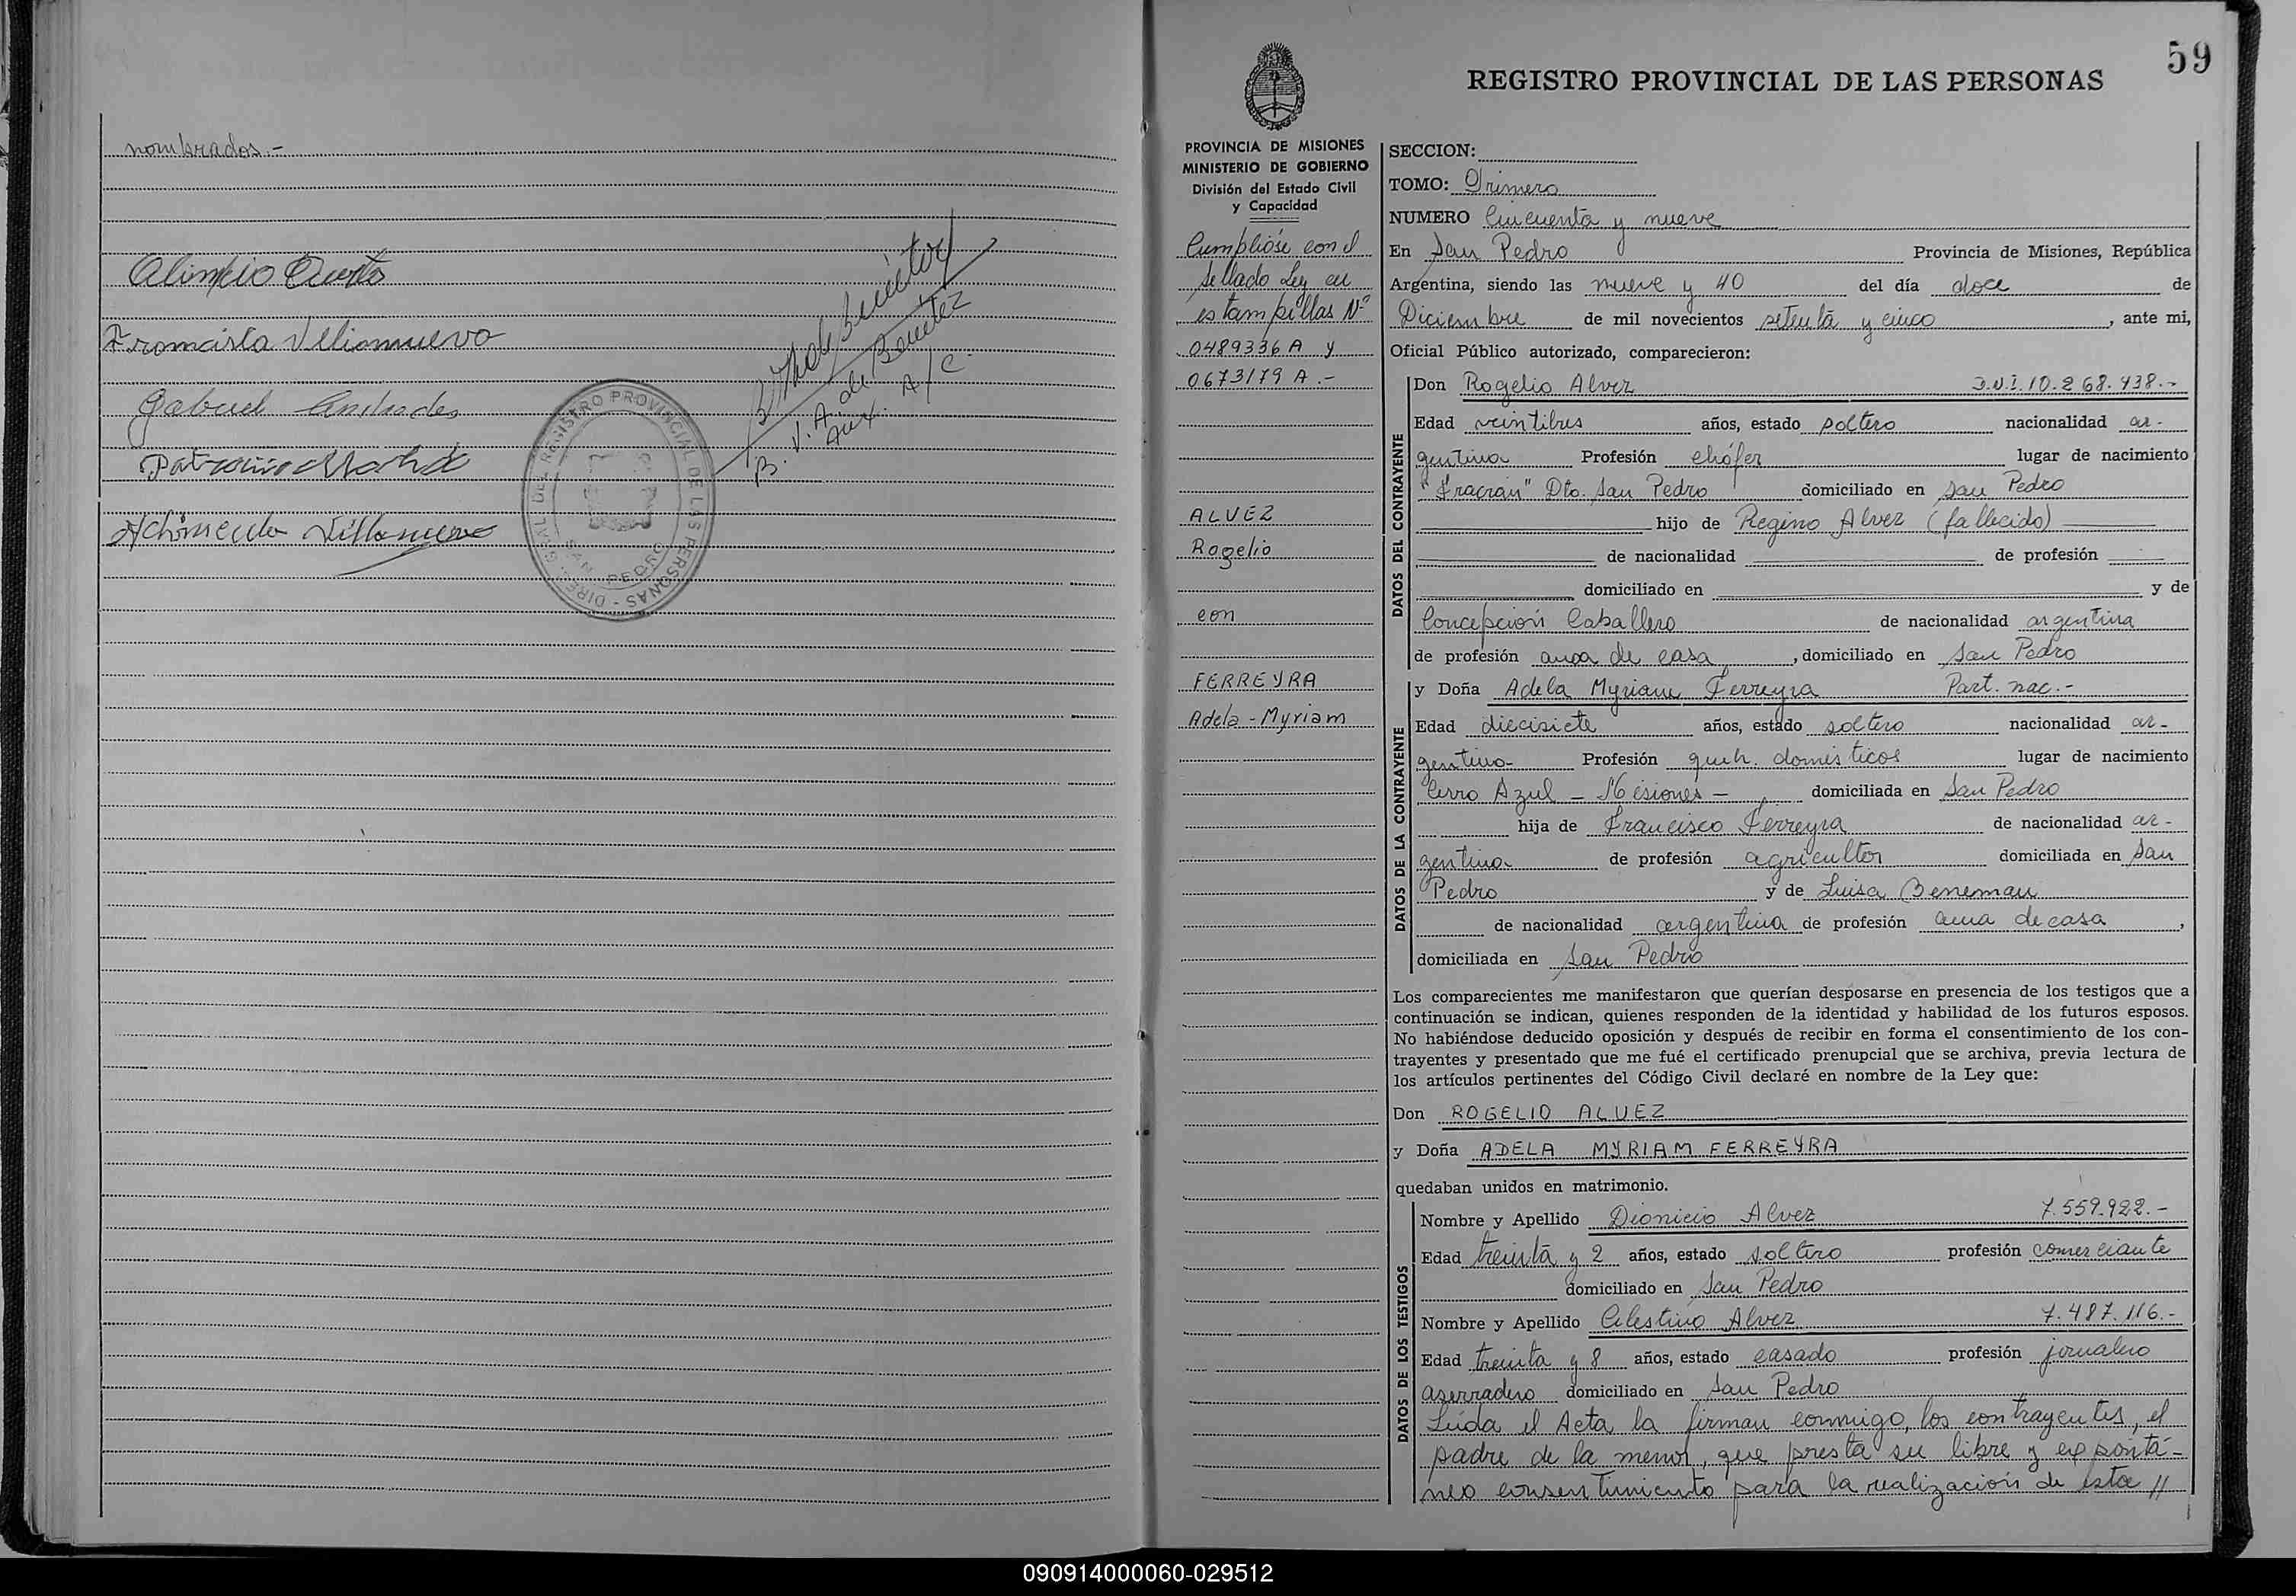 nombrados.-
Gabriel Andrades
REGISTRO PROVINCIAL DE LAS PERSONAS
SAN PEDRO
B. V. A. de Benítez
Aux. A/C.
59
REGISTRO PROVINCIAL DE LAS PERSONAS
PROVINCIA DE MISIONES
MINISTERIO DE GOBIERNO
División del Estado Civil
y Capacidad
Cumplióse con el
sellado Ley en
estampillas Nº
0489336 A y
0673179 A.-
ALVEZ
Rogelio
con
FERREYRA
Adela-Myriam
SECCION:
TOMO: Primero
NUMERO Cincuenta y nueve
En San Pedro Provincia de Misiones, República
Argentina, siendo las nueve y 40 del día doce de
Diciembre de mil novecientos setenta y cinco, ante mi,
Oficial Público autorizado, comparecieron:
DATOS DEL CONTRAYENTE
Don Rogelio Alvez D.N.I. 10.268.438.-
Edad veintitres años, estado soltero nacionalidad ar-
gentina Profesión chófer lugar de nacimiento
"Fracran" Dto. San Pedro domiciliado en San Pedro
hijo de Regino Alvez (fallecido)
de nacionalidad de profesión
domiciliado en y de
Concepción Caballero de nacionalidad argentina
de profesión ama de casa, domiciliado en San Pedro
DATOS DE LA CONTRAYENTE
y Doña Adela Myriam Ferreyra Part. nac.-
Edad diecisiete años, estado soltero nacionalidad ar-
gentina Profesión queh. domésticos lugar de nacimiento
Cerro Azul - Misiones - domiciliada en San Pedro
hija de Francisco Ferreyra de nacionalidad ar-
gentina de profesión agricultor domiciliada en San
Pedro y de Luisa Beneman
de nacionalidad argentina de profesión ama de casa,
domiciliada en San Pedro
Los comparecientes me manifestaron que querían desposarse en presencia de los testigos que a
continuación se indican, quienes responden de la identidad y habilidad de los futuros esposos.
No habiéndose deducido oposición y después de recibir en forma el consentimiento de los con-
trayentes y presentado que me fué el certificado prenupcial que se archiva, previa lectura de
los artículos pertinentes del Código Civil declaré en nombre de la Ley que:
Don ROGELIO ALVEZ
y Doña ADELA MYRIAM FERREYRA
quedaban unidos en matrimonio.
DATOS DE LOS TESTIGOS
Nombre y Apellido Dionicio Alvez 7.559.922.-
Edad treinta y 2 años, estado soltero profesión comerciante
domiciliado en San Pedro
Nombre y Apellido Celestino Alvez 7.487.116.-
Edad treinta y 8 años, estado casado profesión jornalero
aserradero domiciliado en San Pedro
Leída el Acta la firman conmigo, los contrayentes, el
padre de la menor, que presta su libre y expontá-
neo consentimiento para la realización de esta //
090914000060-029512